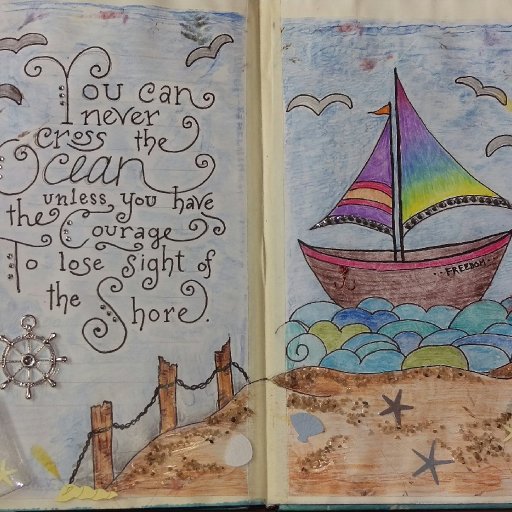 You can
never
cross the
Ocean
unless you have
the Courage
To lose sight of
the Shore.
·FREEDOM·